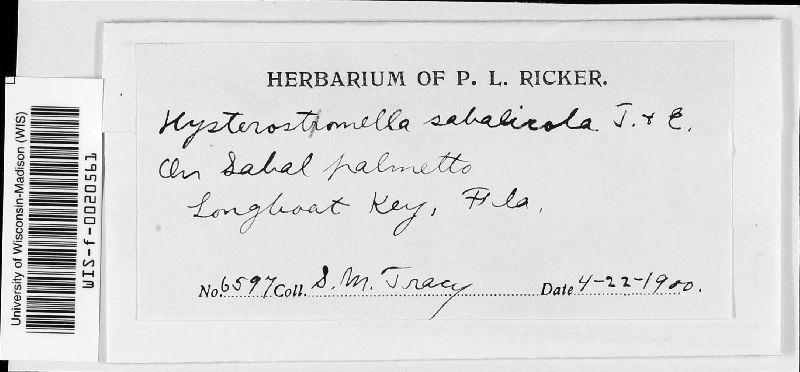 HERBARIUM OF P. L. RICKER.
Hysterostomella sabalicola T. & E.
On Sabal palmetto
Longboat Key, Fla.
No. 6597 Coll. S. M. Tracy Date 4-22-1900.
University of Wisconsin-Madison (WIS)
WIS-f-0020561